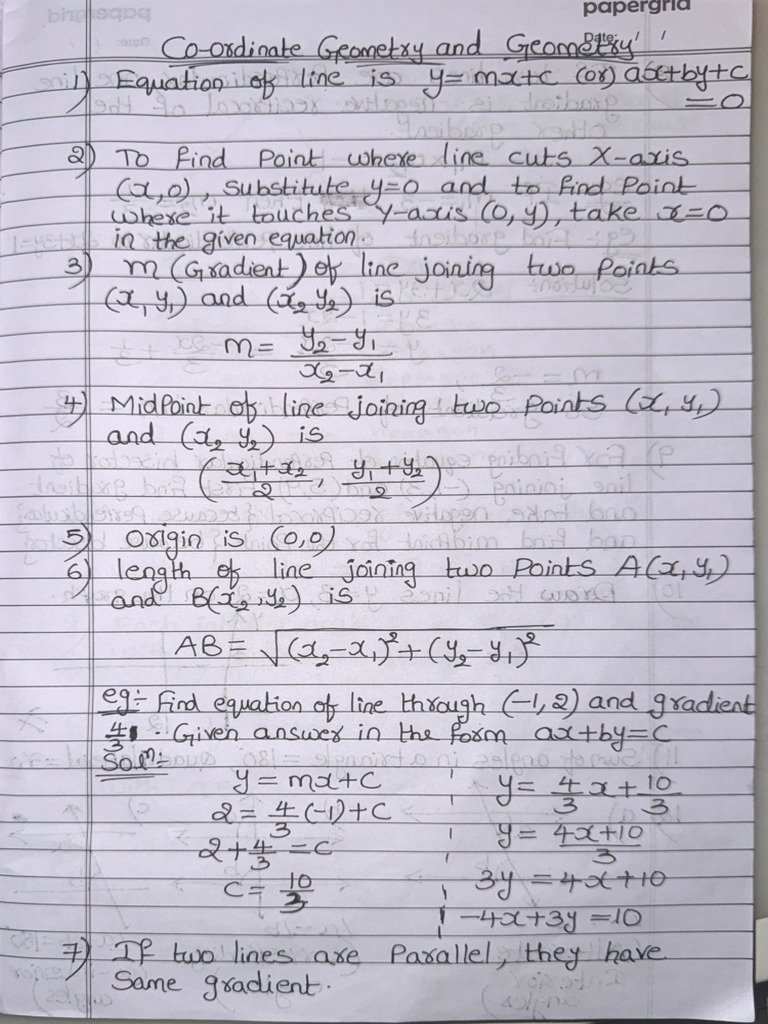 papergrid
Date: / /
Co-ordinate Geometry and Geometry
1) Equation of line is y=mx+c (or) ax+by+c
=0
2) To find Point where line cuts X-axis
(x,0), substitute y=0 and to find Point
where it touches Y-axis (0, y), take x=0
in the given equation.
3) m (Gradient) of line joining two Points
(x₁ y₁) and (x₂ y₂) is
m= y₂-y₁ / x₂-x₁
4) MidPoint of line joining two Points (x₁ y₁)
and (x₂ y₂) is
(x₁+x₂/2, y₁+y₂/2)
5) Origin is (0,0)
6) length of line joining two Points A(x₁ y₁)
and B(x₂, y₂) is
AB= √(x₂-x₁)²+(y₂-y₁)²
eg:- Find equation of line through (-1, 2) and gradient
4/3. Given answer in the form ax+by=c
Solⁿ:-
y=mx+c
2= 4/3 (-1)+c
2+4/3 =c
c= 10/3
y= 4/3 x+10/3
y= 4x+10/3
3y =4x+10
-4x+3y =10
7) If two lines are Parallel, they have
Same gradient.